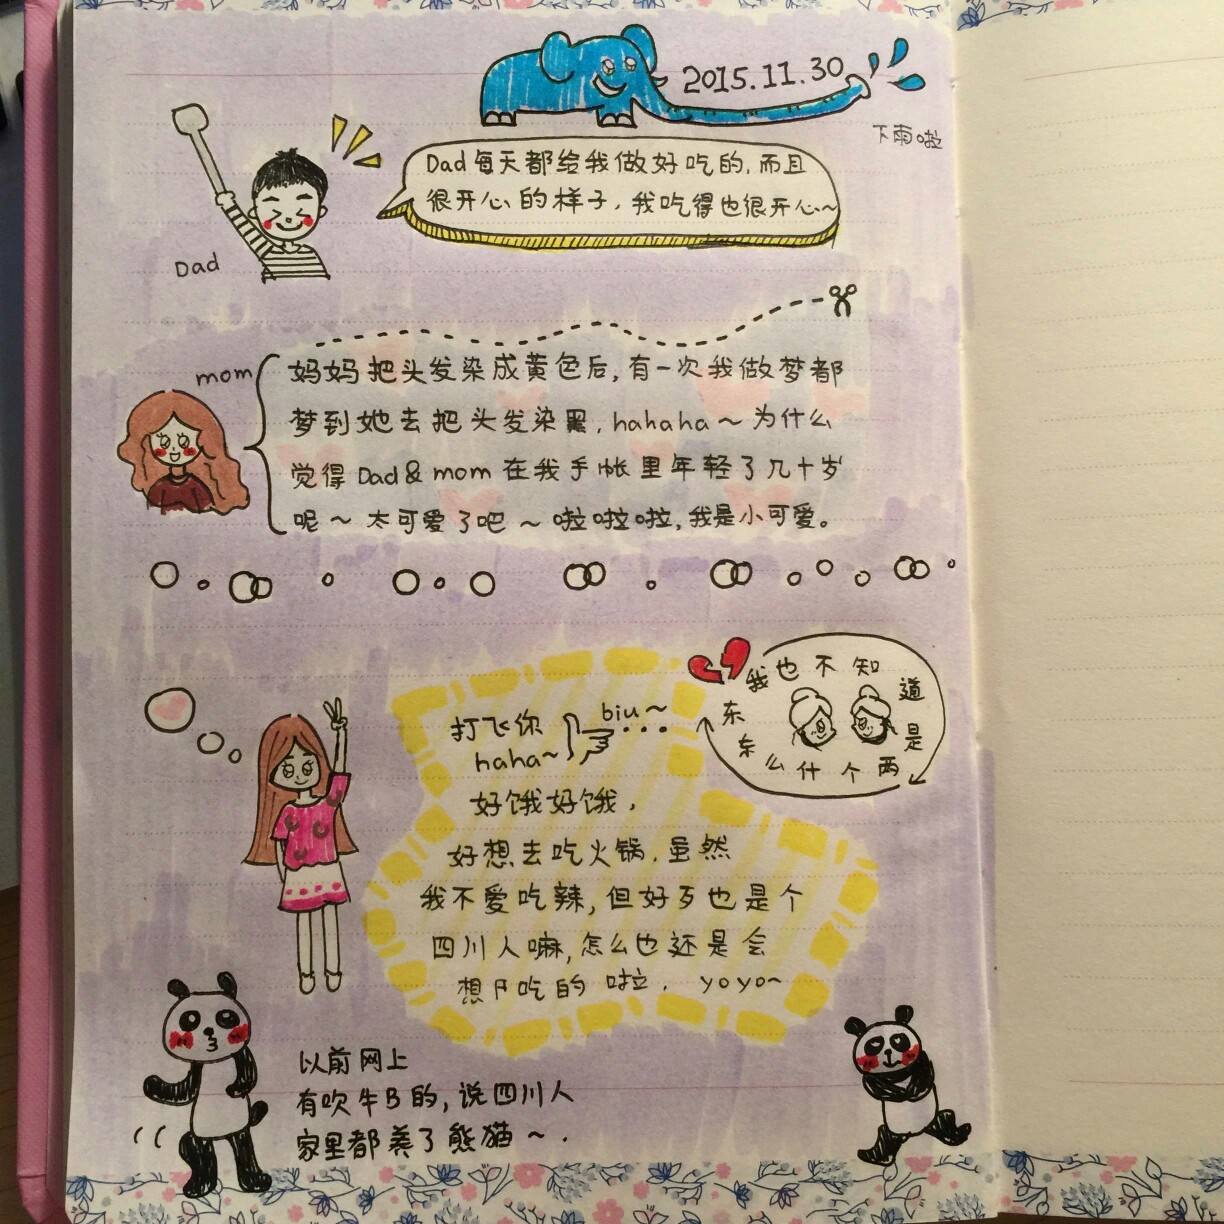 2015.11.30
下雨啦
Dad每天都给我做好吃的,而且
很开心的样子,我吃得也很开心~
Dad
mom
妈妈把头发染成黄色后,有一次我做梦都
梦到她去把头发染黑,hahaha~为什么
觉得Dad&mom在我手帐里年轻了几十岁
呢~太可爱了吧~啦啦啦,我是小可爱。
我也不知道是两个什么东东
打飞你
biu~
haha~
好饿好饿,
好想去吃火锅.虽然
我不爱吃辣,但好歹也是个
四川人嘛,怎么也还是会
想吃的啦. yoyo~
以前网上
有吹牛B的,说四川人
家里都养了熊猫~.